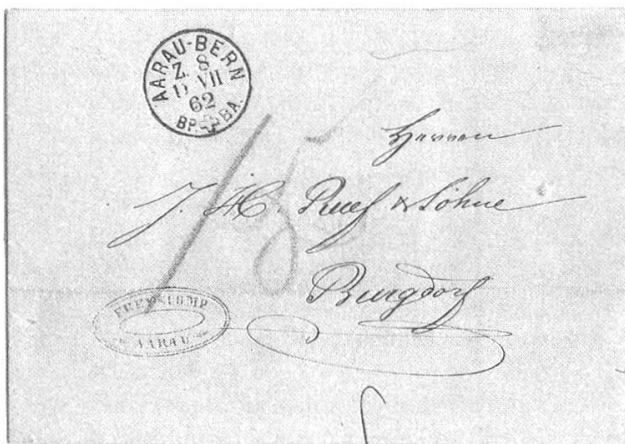 AARAU-BERN
Z. 8
VII
62
BP. BA.
Herren
J. H. Ruef & Söhne
Burgdorf
15
AARAU